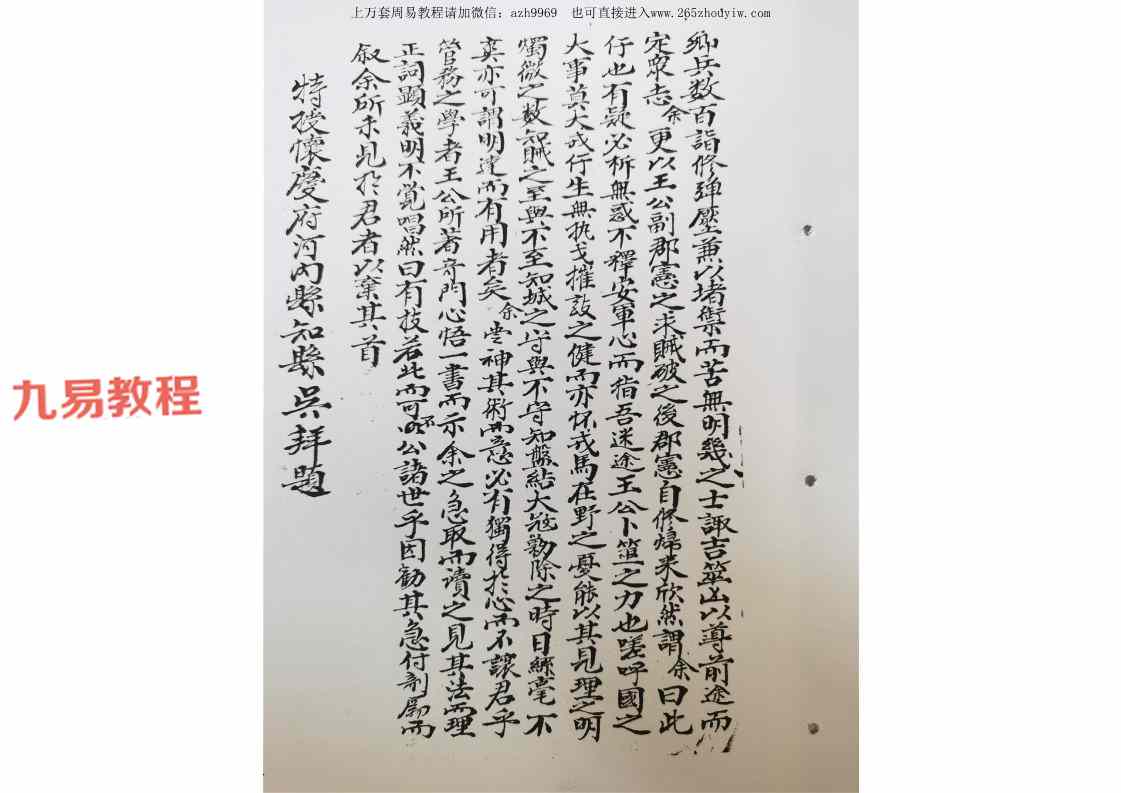 上万套周易教程请加微信：azh9969　也可直接进入www.265zhouyiw.com
鄉兵数百詣修弹壓兼以堵禦而苦無明幾之士諏吉筮凶以導前途而
定衆志余更以王公副郡憲之求賊破之後郡憲自修歸来欣然謂余曰此
行也有疑必析無惑不釋安軍心而指吾迷途王公卜筮之力也嗟呼國之
大事莫大戎行生無执戈摧敌之健而亦怀戎馬在野之憂能以其見理之明
燭微之数知賊之至與不至知城之守與不守知盤結大冦勦除之時日縣毫不
爽亦可謂明達而有用者矣余尝神其術而意必有獨得於心而不讓君乎
管務之學者王公所著奇門心悟一書而示余之急取而读之見其法而理
正詞顕義明不覚喟然曰有技若此而可不公諸世乎因勸其急付剞劂而
叙余所未見於君者以棄其首
特授懷慶府河内縣知縣吴拜題
九易教程